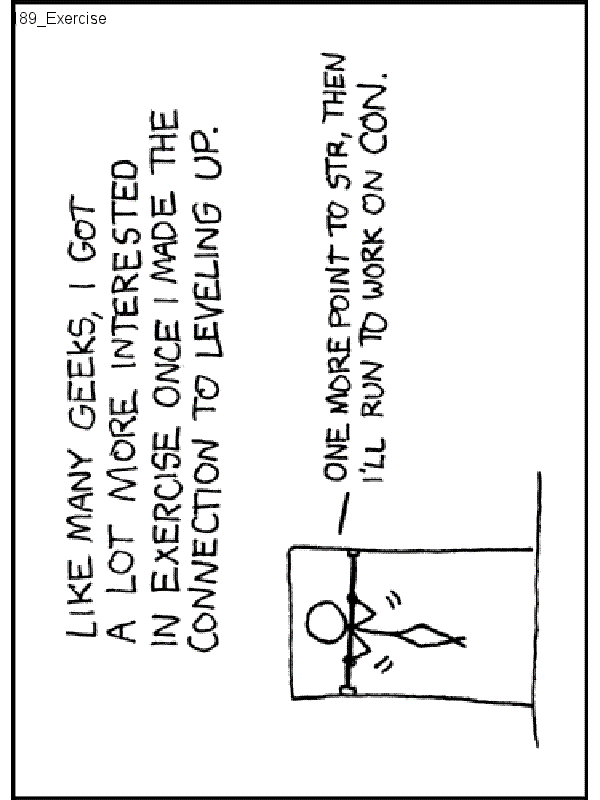 89_Exercise
LIKE MANY GEEKS, I GOT
A LOT MORE INTERESTED
IN EXERCISE ONCE I MADE THE
CONNECTION TO LEVELING UP.
ONE MORE POINT TO STR, THEN
I'LL RUN TO WORK ON CON.